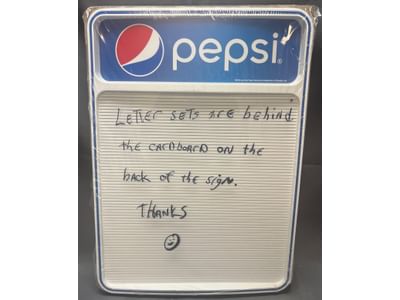 pepsi®
Letter sets are behind
the cardboard on the
back of the sign.
Thanks